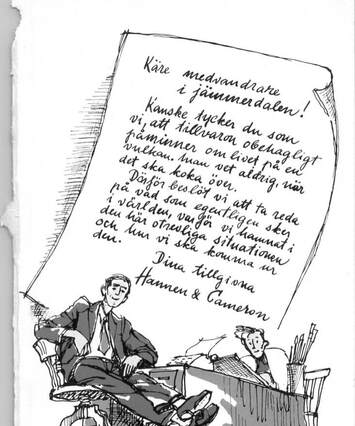 Käre medvandrare
i jämmerdalen!
Kanske tycker du som
vi, att tillvaron obehagligt
påminner om livet på en
vulkan. Man vet aldrig, när
det ska koka över.
Därför beslöt vi att ta reda
på vad som egentligen sker
i världen, varför vi hamnat i
den här otrevliga situationen
och hur vi ska komma ur
den.
Dina tillgivna
Hannen & Cameron